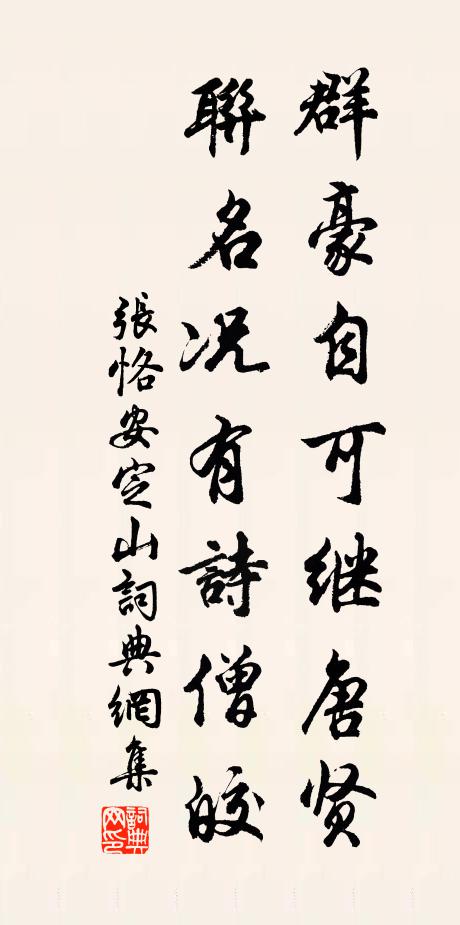 群豪自可继唐贤
聯名况有詩僧皎
張恪安定山詞典網集
詞典网印